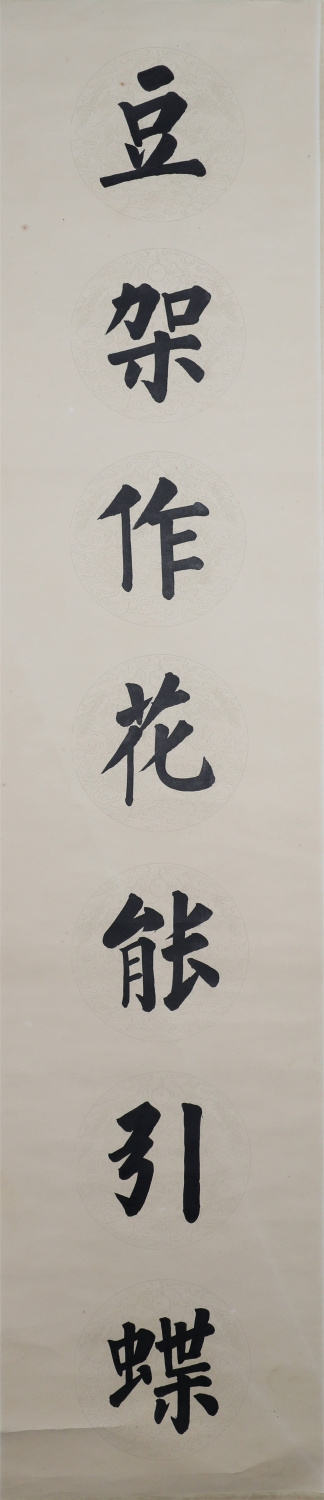 豆架作花能引蝶